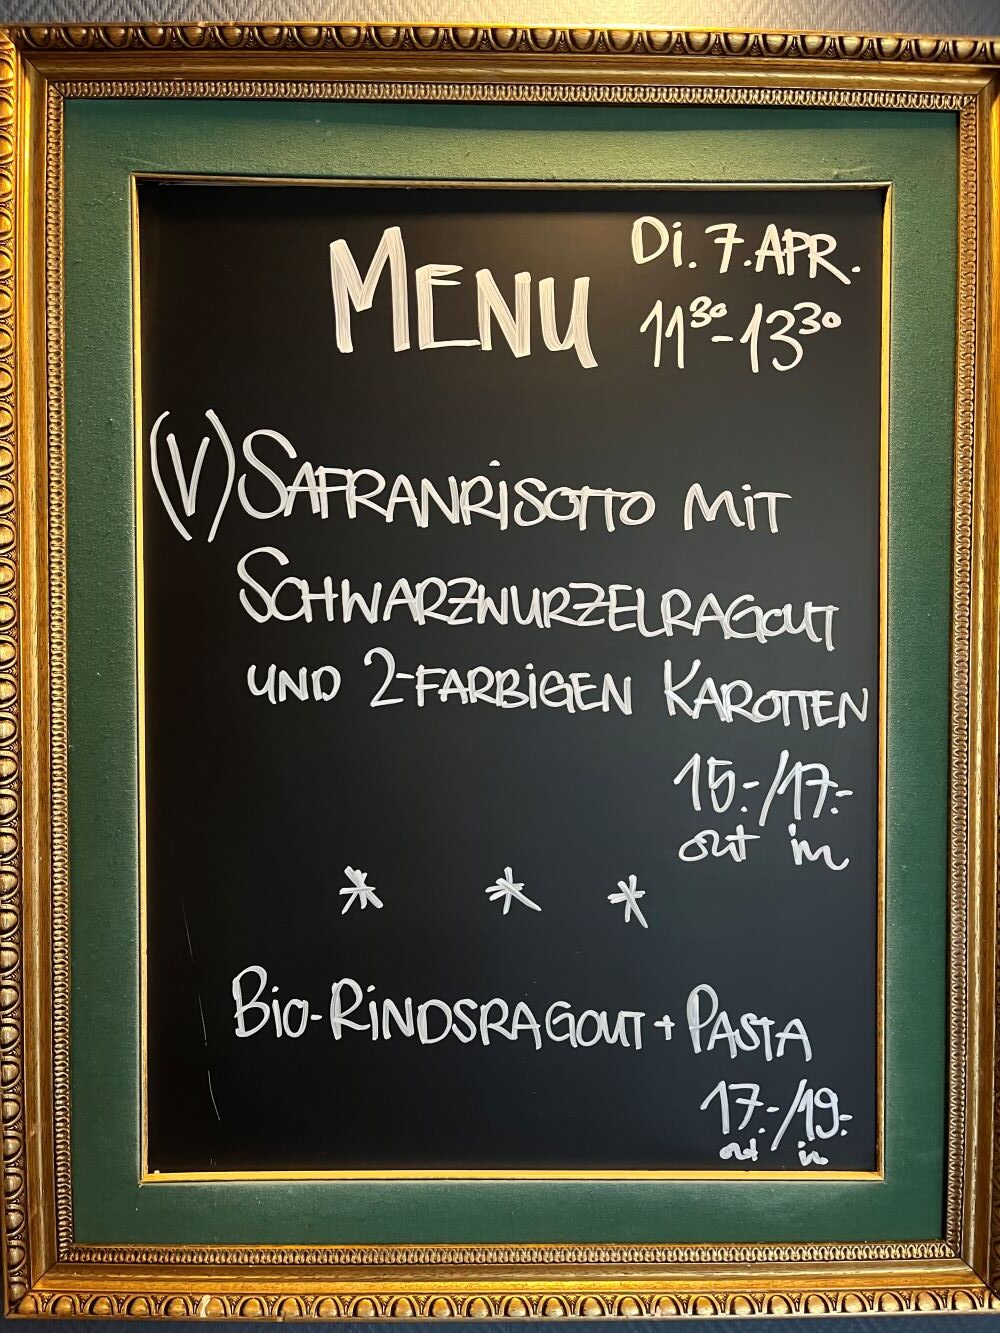 MENU
Di. 7. APR.
11³⁰-13³⁰
(V) SAFRANRISOTTO MIT
SCHWARZWURZELRAGOUT
UND 2-FARBIGEN KAROTTEN
15.-/17.-
out in
* * *
BIO-RINDSRAGOUT + PASTA
17.-/19.-
out in